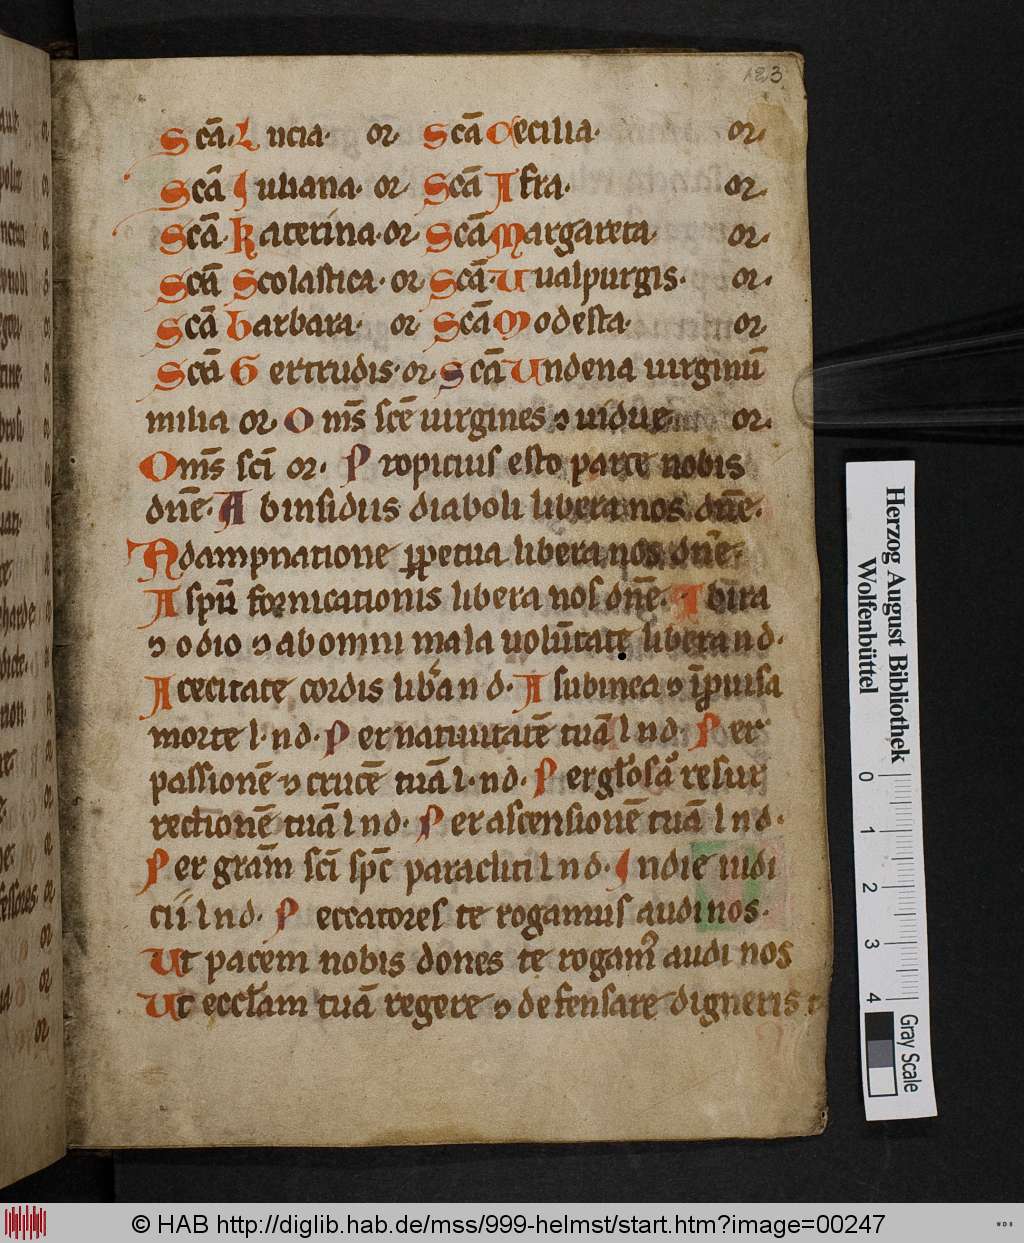 123
Scā. Lucia. or. Scā Cecilia. or.
Scā Iuliana. or Scā Afra. or.
Scā. Katerina. or. Scā Margareta. or.
Scā Scolastica. or Scā. Uualpurgis. or.
Scā Barbara. or Scā Modesta. or
Scā Gertrudis. or. Scā Undena uirginū
milia or. Om̄s scē uirgines ⁊ uidue or.
Om̄s scī or. Propicius esto parce nobis
dn̄e. Ab insidiis diaboli libera nos dn̄e.
A dampnatione ꝑpetua libera nos dn̄e.
A spū fornicationis libera nos dn̄e. Ab ira
⁊ odio ⁊ ab omni mala uolūtate libera n d.
A cecitate cordis lib̾a n d. A subitnea ⁊ īprouisa
morte l. n d. Per natiuitatē tuā l n d. Per
passionē ⁊ crucē tuā l. n d. Per glosā resur
rectionē tuā l n d. Per ascensionē tuā l n d.
Per grām scī spc̄ paracliti l n d. In die iudi
cii l n d. Peccatores te rogamus audi nos.
Ut pacem nobis dones te rogam᷒ audi nos
Ut eccl̄am tuā regere ⁊ defensare digneris t
Herzog August Bibliothek
Wolfenbüttel
0 1 2 3 4
Gray Scale
© HAB http://diglib.hab.de/mss/999-helmst/start.htm?image=00247
WDB